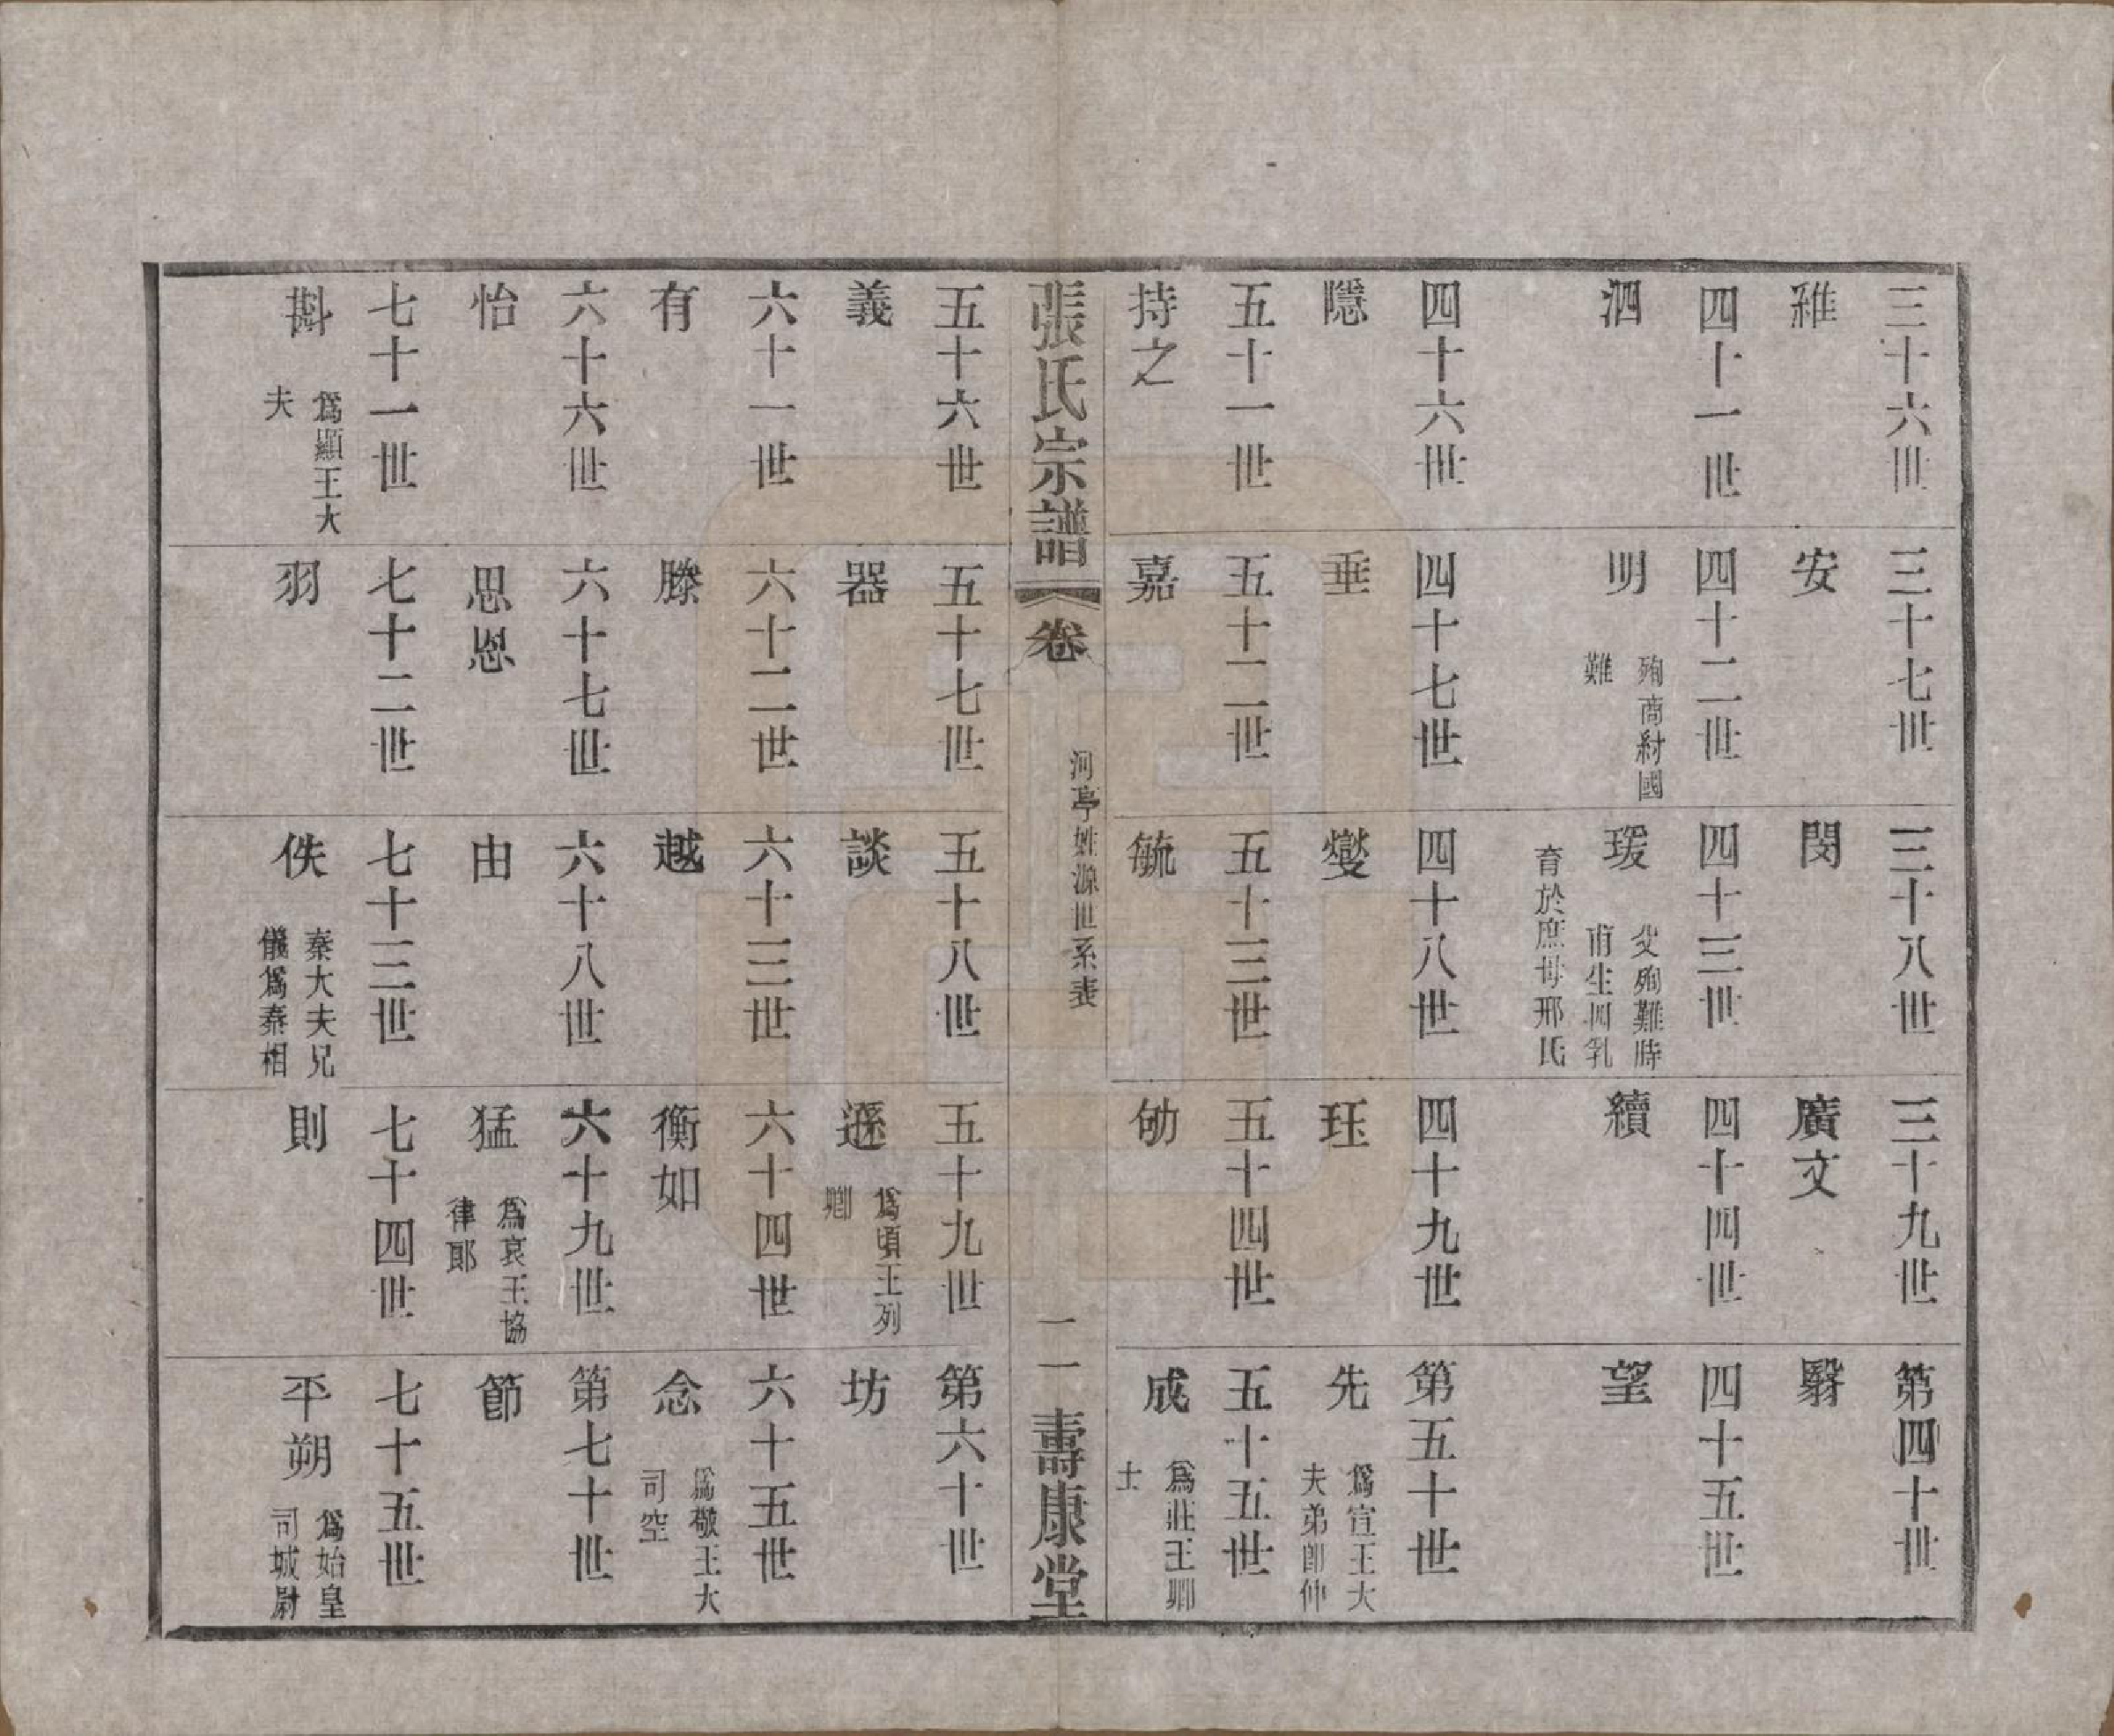 三十六世
雒
三十七世
安
三十八世
閔
三十九世
廣文
第四十世
翳
四十一世
泗
四十二世
明
殉商紂國
難
四十三世
瑗
父殉難時
甫生四乳
育於庶母邢氏
四十四世
續
四十五世
望
四十六世
隱
四十七世
垂
四十八世
燮
四十九世
珏
第五十世
先
爲宣王大
夫弟卽仲
五十一世
持之
五十二世
嘉
五十三世
毓
五十四世
劬
五十五世
成
爲莊王卿
士
張氏宗譜
卷
河亭姓源世系表
二
壽康堂
五十六世
義
五十七世
器
五十八世
談
五十九世
遜
爲頃王列
卿
第六十世
坊
六十一世
有
六十二世
滕
六十三世
越
六十四世
衡如
六十五世
念
爲敬王大
司空
六十六世
怡
六十七世
思恩
六十八世
由
六十九世
猛
爲哀王協
律郎
第七十世
節
七十一世
㪺
爲顯王大
夫
七十二世
羽
七十三世
佚
秦大夫兄
儀爲秦相
七十四世
則
七十五世
平朔
爲始皇
司城尉